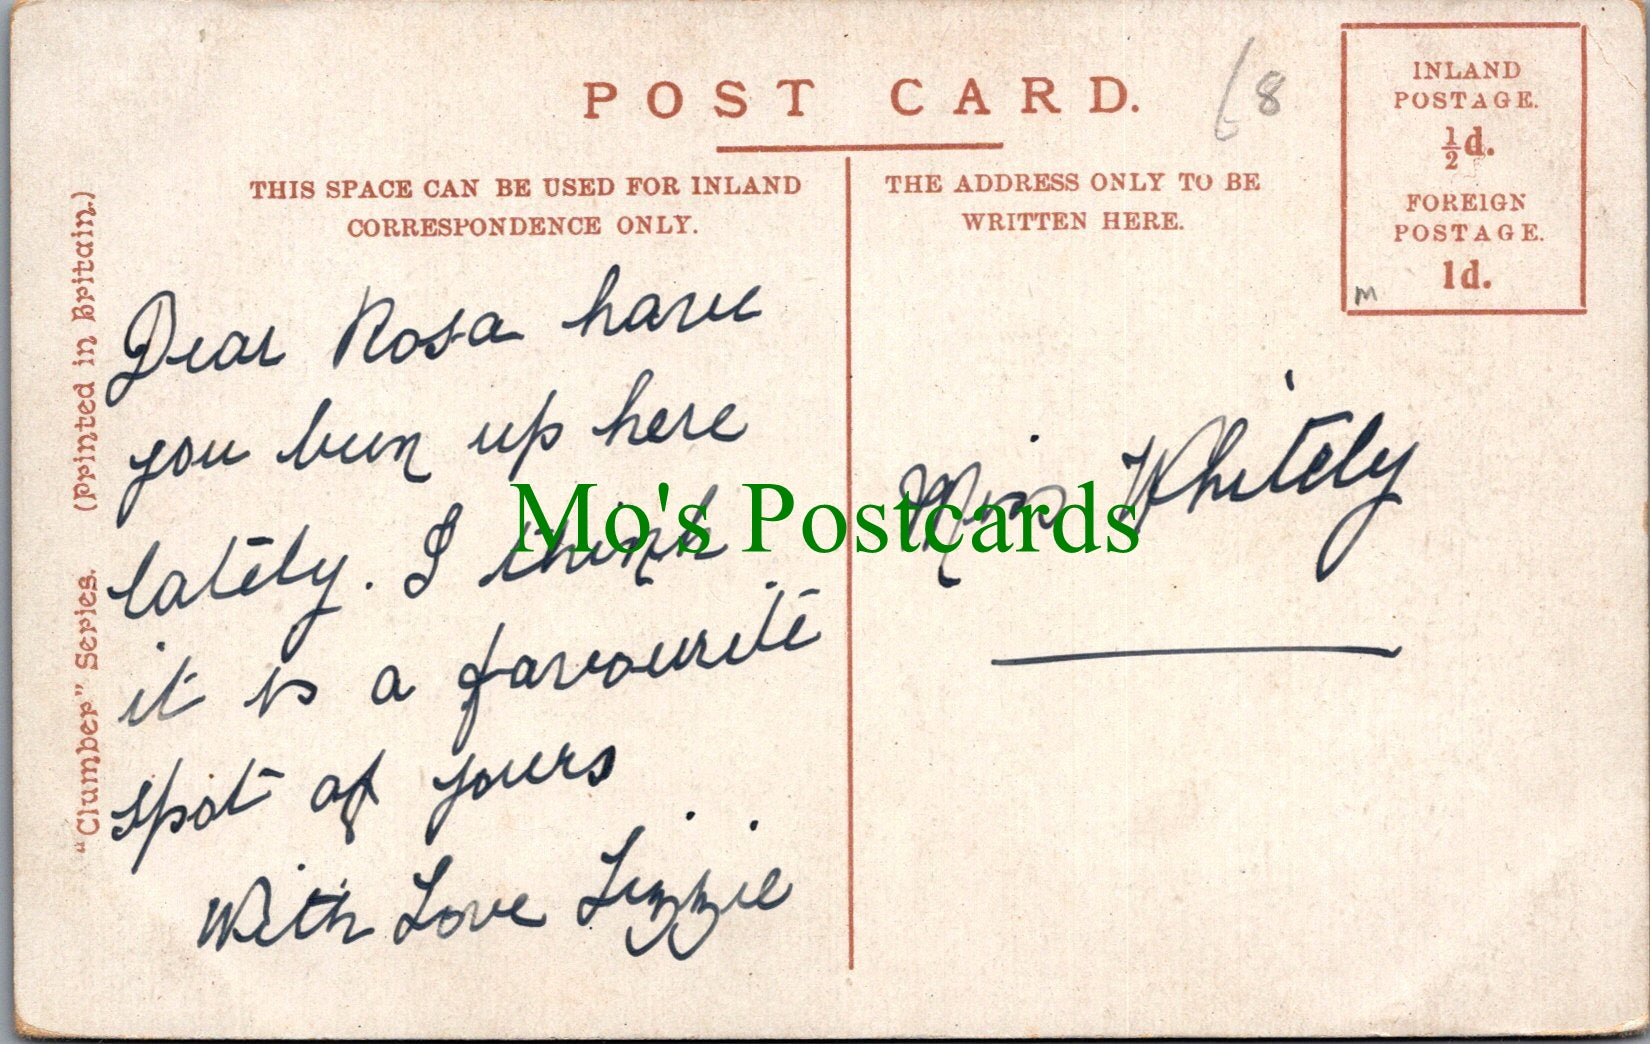 POST CARD.
THIS SPACE CAN BE USED FOR INLAND
CORRESPONDENCE ONLY.
THE ADDRESS ONLY TO BE
WRITTEN HERE.
INLAND
POSTAGE.
½d.
FOREIGN
POSTAGE.
1d.
M
"Clumber" Series. (Printed in Britain.)
Dear Rosa have
you been up here
lately. I think
it is a favourite
spot of yours
With Love Lizzie
Miss Whitely
Mo's Postcards